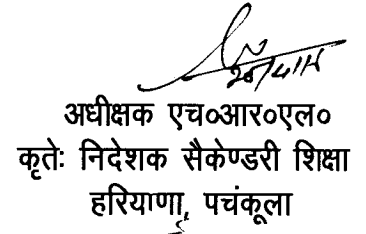 अधीक्षक एच०आर०एल०
कृतेः निदेशक सैकेण्डरी शिक्षा
हरियाणा, पचंकूला